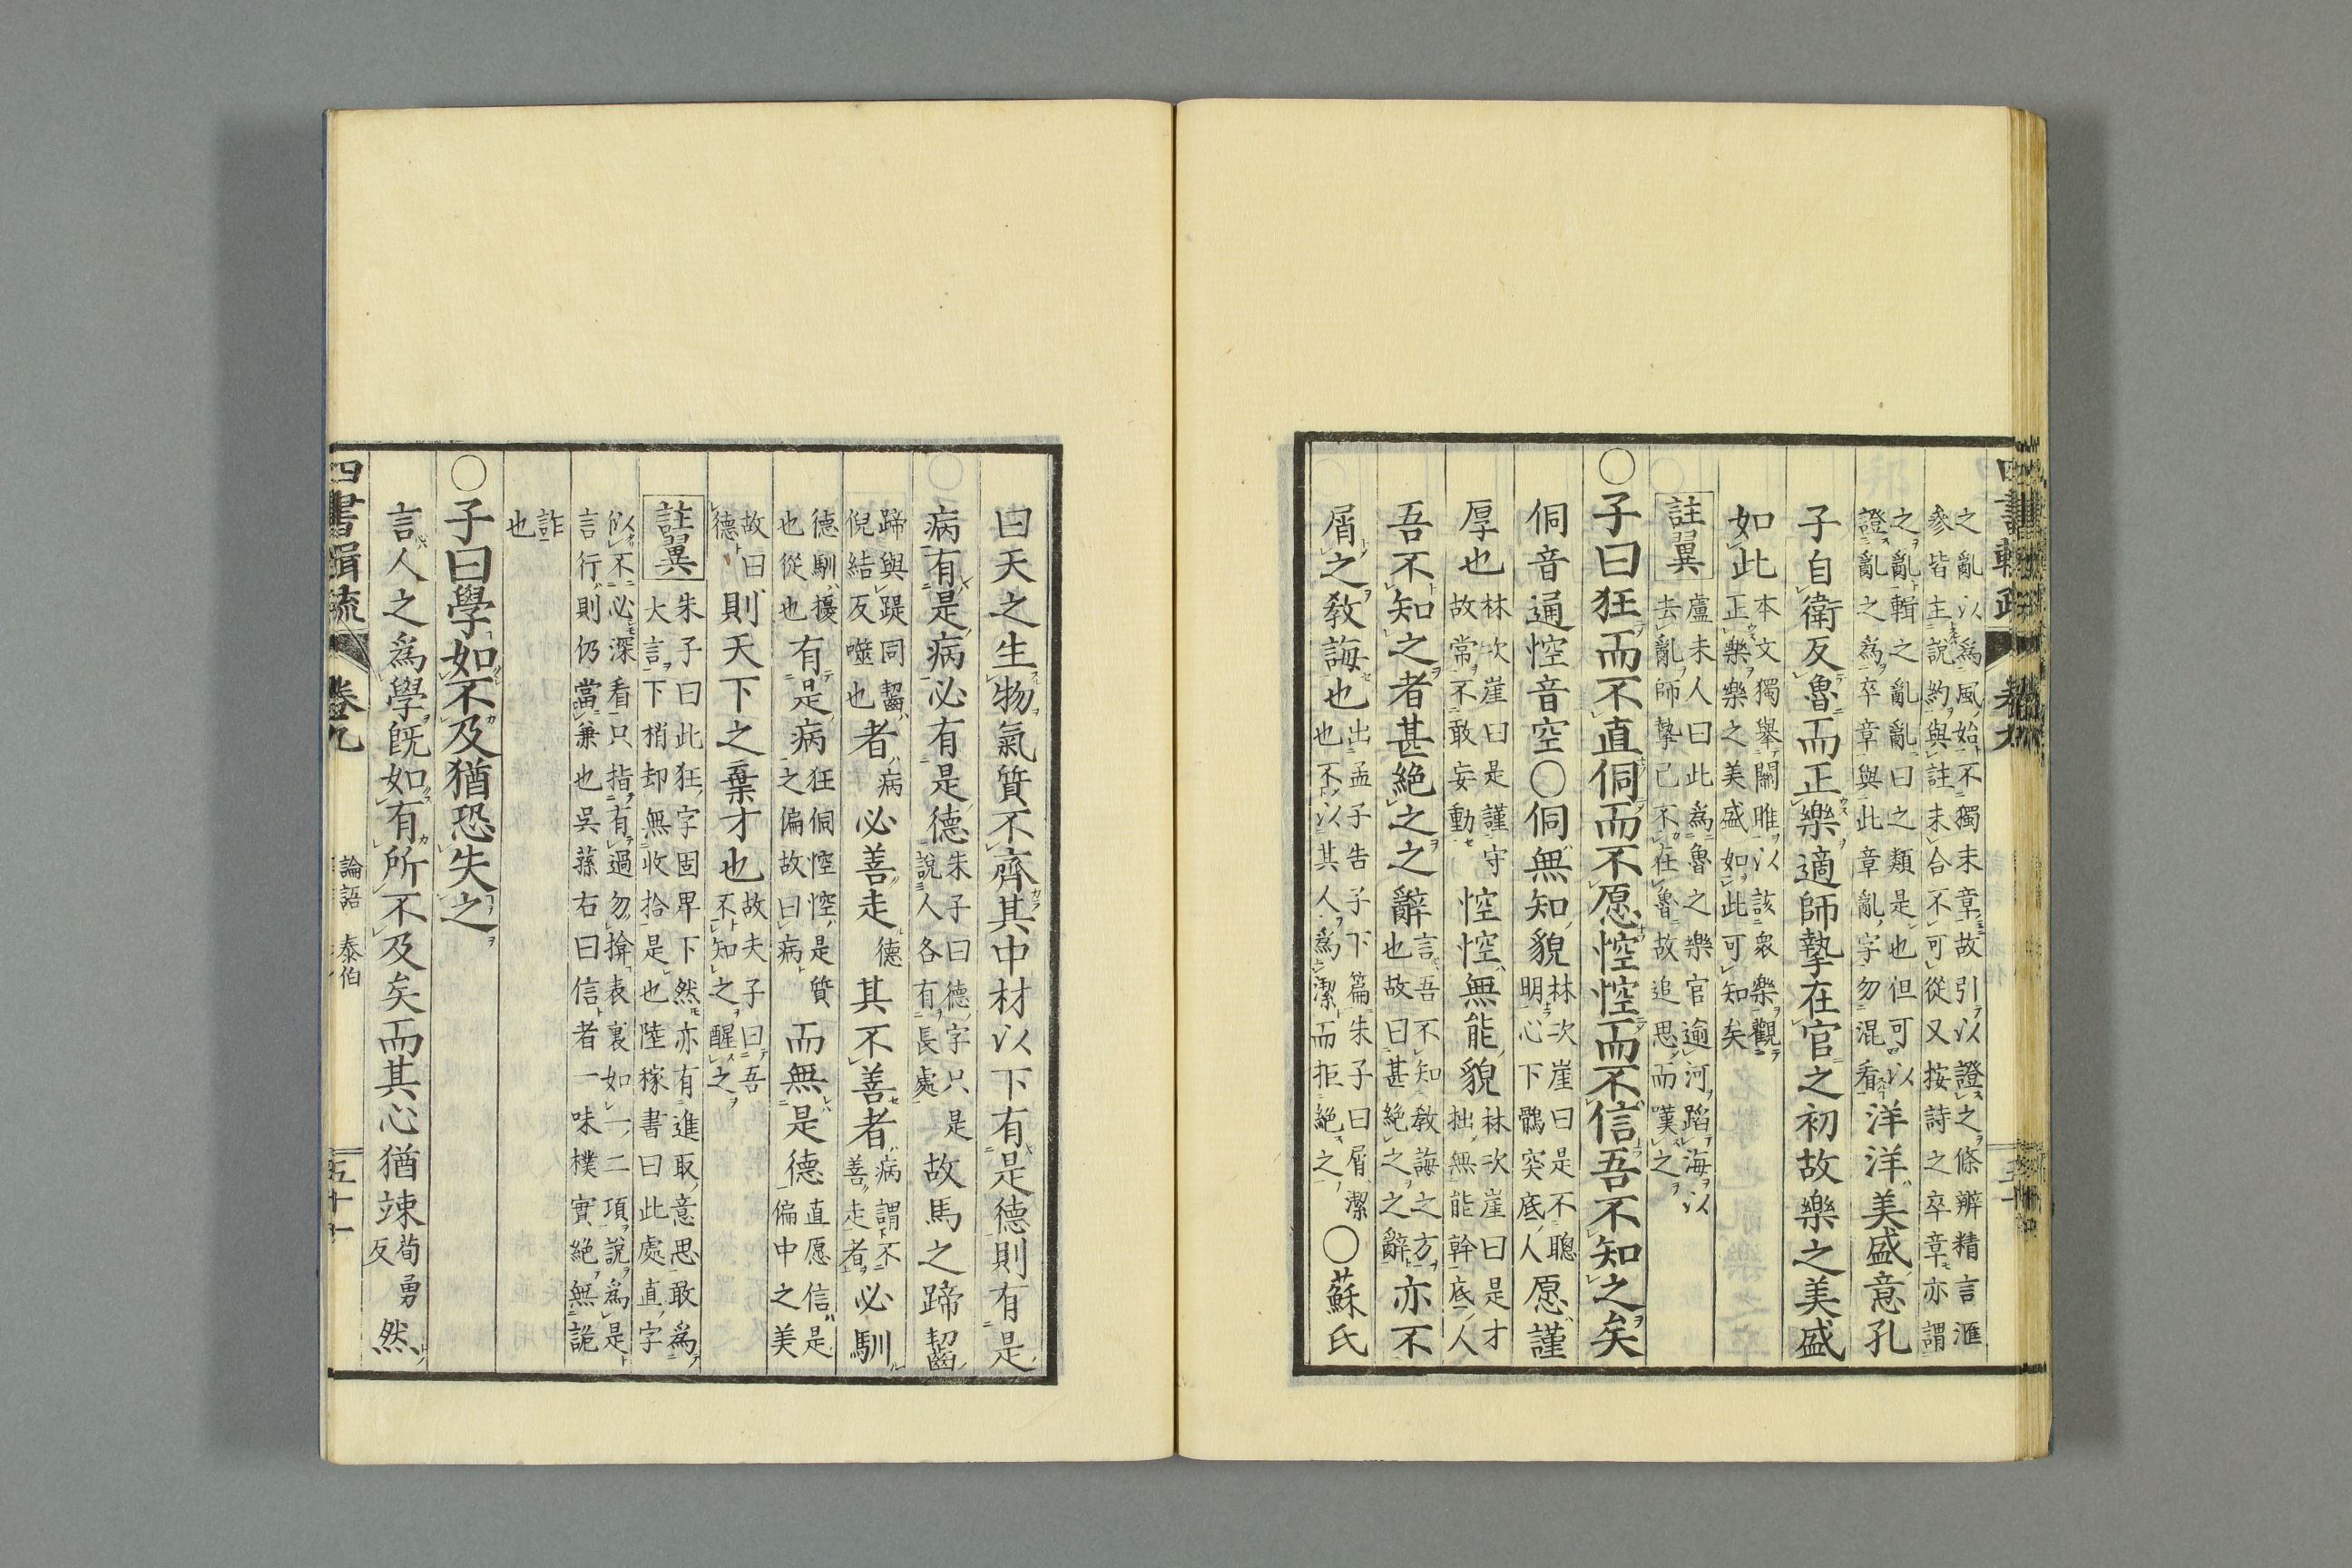 之亂以爲風始不獨末章故引以證之條辨精言滙
參皆主說約與註未合不可從又按詩之卒章亦謂
之亂輯之亂亂曰之類是也但可以
證亂之爲卒章與此章亂字勿混看洋洋美盛意孔
子自衛反魯而正樂適師摯在官之初故樂之美盛
如此本文獨舉關雎以該衆樂觀
正樂樂之美盛如此可知矣
註翼盧未人曰此爲魯之樂官逾河蹈海以
去亂師摯已不在魯故追思而嘆之
○子曰狂而不直侗而不愿悾悾而不信吾不知之矣
侗音通悾音空○侗無知貌林次崖曰是不聰
明心下鶻突底人愿謹
厚也林次崖曰是謹守
故常不敢妄動悾悾無能貌林次崖曰是才
拙無能幹底人
吾不知之者甚絕之之辭言吾不知教誨之方
也故曰甚絕之之辭亦不
屑之教誨也出孟子告子下篇朱子曰屑潔
也不以其人爲潔而拒絕之○蘇氏
曰天之生物氣質不齊其中材以下有是德則有是
病有是病必有是德朱子曰德字只是
說人各有長處故馬之蹄齧
蹄與踶同齧
倪結反噬也者病必善走德其不善者病謂不
善走者必馴
德馴擾
也從也有是病狂侗悾悾是質
之偏故曰病而無是德直愿信是
偏中之美
故曰
德則天下之棄才也故夫子曰吾
不知之醒之
註翼朱子曰此狂字固卑下然亦有進取意思敢爲
大言下梢却無收拾是也陸稼書曰此處直字
似不必深看只指有過勿揜表裏如一二項說爲是
言行則仍當兼也吳蓀右曰信者一味樸實絕無詭
詐
也
○子曰學如不及猶恐失之
言人之爲學旣如有所不及矣而其心猶竦荀勇
反然
四書輯疏 卷九 論語 泰伯 五十一